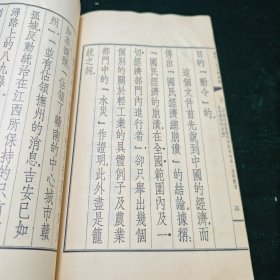 目的「動令」的。
這個文件首先說到中國的經濟，而
得出「國民經濟總崩潰」的結論，據稱，
「國民經濟的崩潰，在全國範圍內及一
切經濟部門內進行者」，卻只舉出幾個
個別的關於輕工業的具體例子及農業
部門中的「水災」作證明，此外盡是籠
統之詞。
「佔領」贛南的中心城市贛
州」，並有佔領撫州的消息，吉安已如
孤城，反動統治在江西所保持的只
路上的八九縣